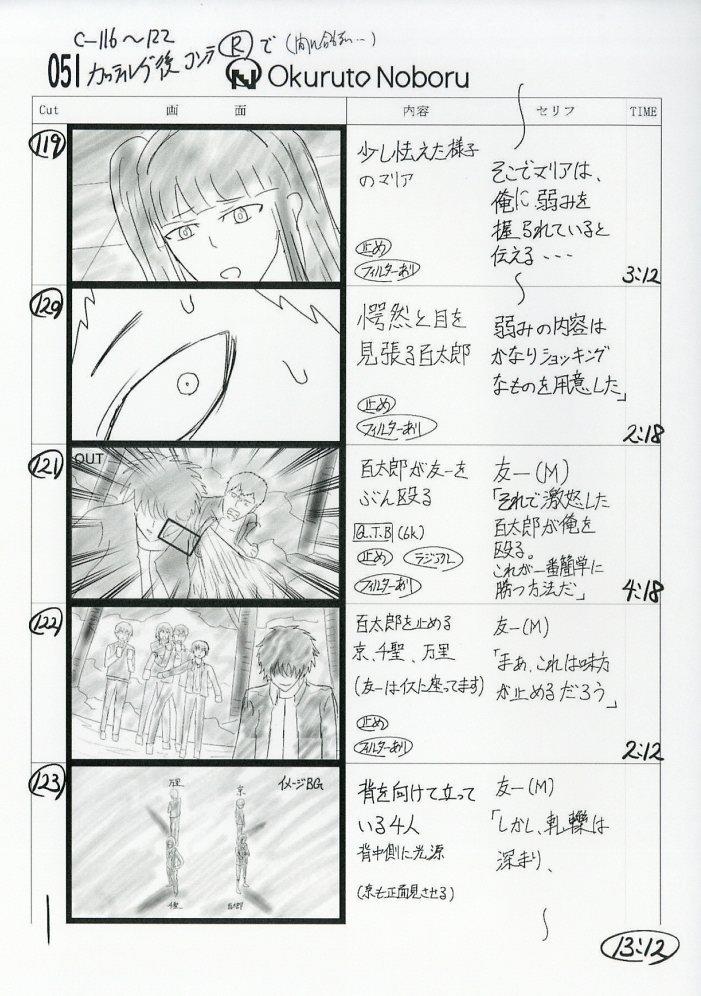 C-116〜122
カッティング後 コンテ Ⓡ で
051
Okuruto Noboru
Cut 画 面 内容 セリフ TIME
119
少し怯えた様子
のマリア
止め
フィルターあり
そこでマリアは、
俺に弱みを
握られていると
伝える・・・
3:12
120
愕然と目を
見張る百太郎
止め
フィルターあり
弱みの内容は
かなりショッキング
なものを用意した」
2:18
121
OUT
百太郎が友一を
ぶん殴る
Q.T.B (6k)
止め ラジアル
フィルターあり
友一(M)
「それで激怒した
百太郎が俺を
殴る。
これが一番簡単に
勝つ方法だ」
4:18
122
百太郎を止める
京、千聖、万里
(友一はイスに座ってます)
止め
フィルターあり
友一(M)
「まあ、これは味方
が止めるだろう」
2:12
123
万里 京 イメージBG
千聖 百太郎
背を向けて立って
いる4人
背中側に光源
(京も正面見させる)
友一(M)
「しかし、軋轢は
深まり、
13:12